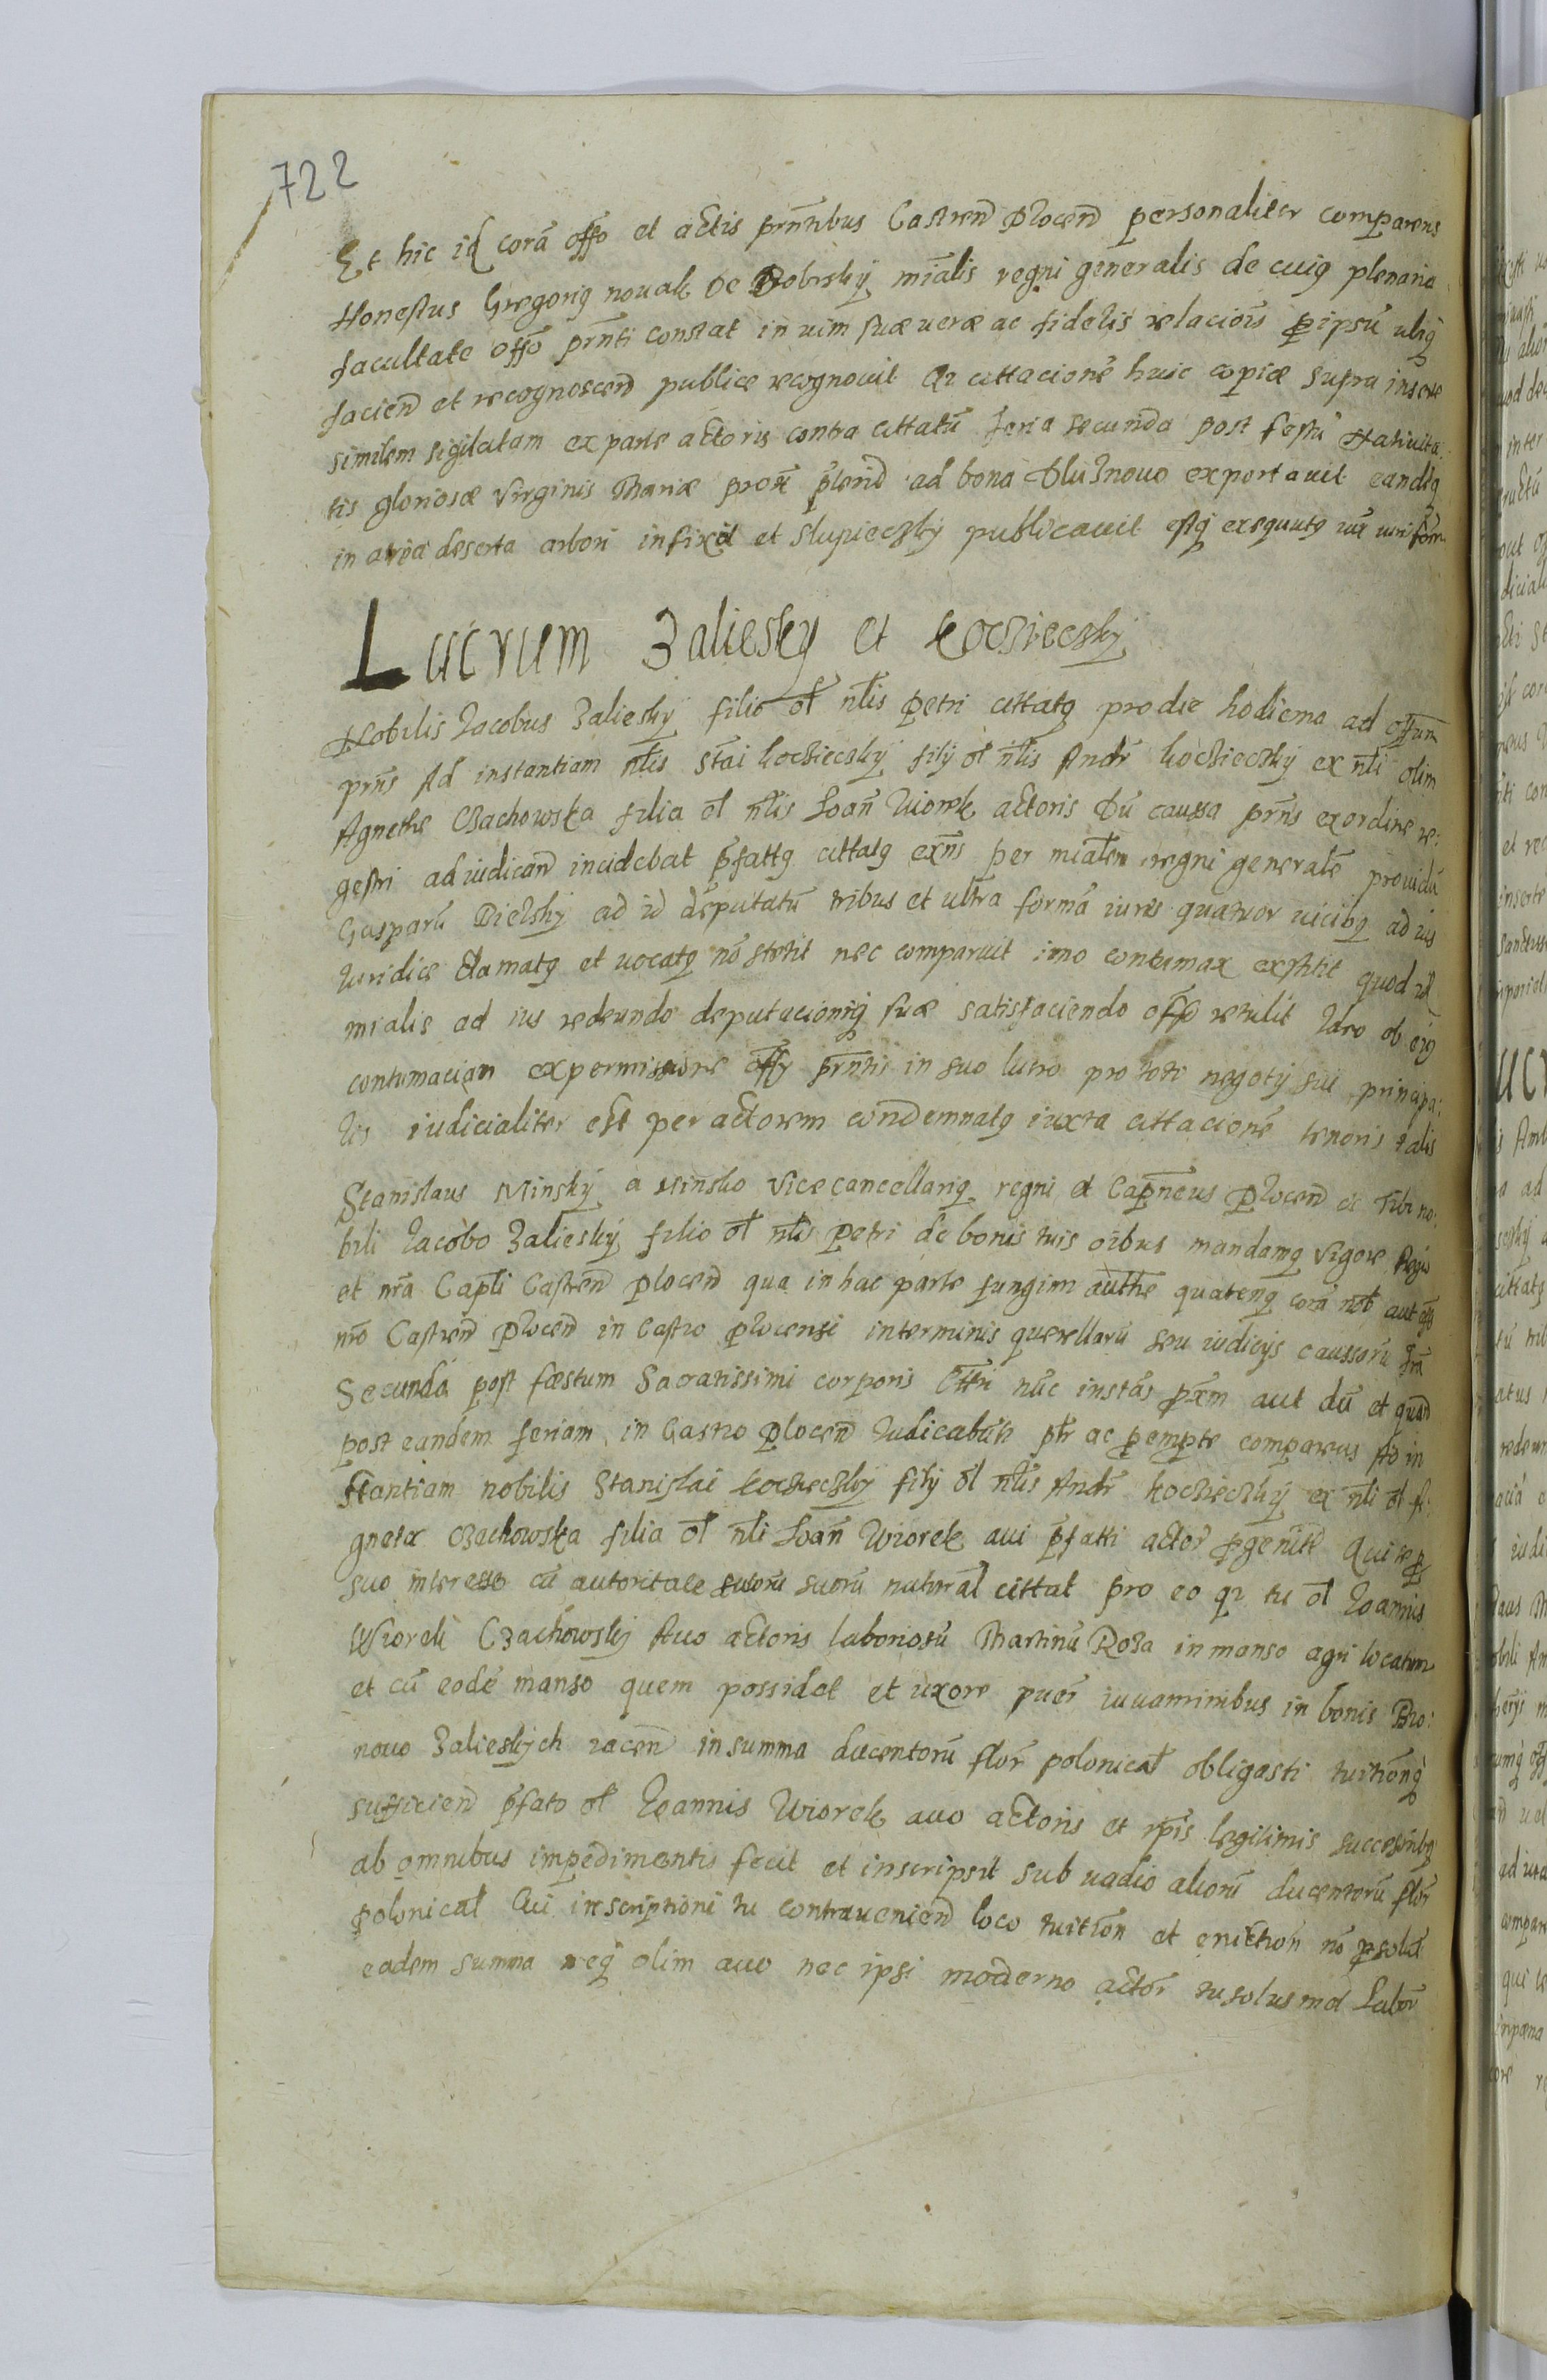 722
Et hic id corã offo et actis prñtibus Castreñ Ploceñ personaliter comparens
Honestus Gregorig novak de Dobrskÿ mĩalis regni generalis de cuig plenaria
facultate offõ prñti constat in vim suæ veræ ac fidelis relaciõis p ipsũ
facieñ et recognosceñ publice recognovit Qz cittacionẽ huic copiæ supra
similem sigilatam ex parte actoris contra cittatũ feria secunda post festũ Nativita:
tis gloriosæ Virginis Mariæ ad bona exportavit eandẽq
in deserta arbori infixit et publicavit
Lucrum Zaliesky et koczieczkÿ
Nobilis Jacobus Zalieskÿ filio ol nlis petri cittatq pro die hodierna ad
prñs Ad instantiam nlis Stãi koczieczkÿ filÿ ol nlis Andr koczieczkÿ ex nli olim
Agnethe Czachowska filia ol nlis Joañ Wiorek actoris Dũ caussa prñs ex ordine re:
gestri adiudicañ incidebat pfattq cittatq exñs per miãlem regni generalẽ providũ
Gasparũ Bielskÿ ad id deputatũ tribus et ultra formã iuris quatuor vicibq ad ius
Juridice clamatq et vocatq nõ stetit nec comparuit imo contumax exstitit quod id
mialis ad ius redeundo deputacioniq suæ satisfaciendo offo retulit Idro ob eig
contumaciam ex permissione offÿ prñtis in suo lucro pro toto negotÿ sui principa:
lis iudicialiter est per actorem condemnatq iuxta cittacionẽ tenoris talis
Stanislaus Minskÿ a Minsko Vicecancellariq regni et Capneus Ploceñ etc Tibi no:
bili Jacobo Zalieskÿ filio ol nlis Petri de bonis tuis oibus mandamq Vigore Regia
et nrã Capli Castreñ Ploceñ qua in hac parte fungimr authte quatenq corã nob aut
nrõ Castreñ Ploceñ in Castro Plocensi in terminis querellarũ seu iudicÿs caussarũ
Secunda post fæstum Sacratissimi corporis Cttri nũc instãs aut dũ et
post eandem feriam in Castro Ploceñ Judicabũtr ptr ac pempte compareas Ad in
stantiam nobilis Stanislai koczieczkÿ filÿ ol nlis Andr koczieczkÿ ex nli ol A:
gneta Czachowska filia ol nli Joañ Wiorek avi pfatti actor pgenite Qui te p
suo interesse cũ autoritate tutorũ suorũ natural cittat pro eo qz tu ol Joannis
Wiorek Czachowskÿ Avo actoris laboriosũ Martinũ Roza in manso agri locatum
et cũ eodẽ manso quem possidet et uxore iuvaminibus in bonis Bro:
novo Zalieskÿch iaceñ in summa ducentorũ flor polonical obligasti
sufficieñ pfato ol Joannis Wiorek avo actoris et ipis legitimis successoribq
ab omnibus impedimentis fecit et inscripsit sub vadio aliorũ ducentorũ flor
polonical Cui inscriptioni tu contravenieñ loco tuitioñ et evictioñ nõ
eadem summa neq olim avo nec ipsi moderno actor tu solus